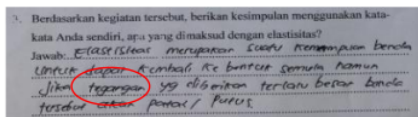 3. Berdasarkan kegiatan tersebut, berikan kesimpulan menggunakan kata-
kata Anda sendiri, apa yang dimaksud dengan elastisitas?
Jawab: Elastisitas merupakan suatu kemampuan benda
untuk dapat kembali ke bentuk semula namun
Jika tegangan yg diberikan terlalu besar benda
tersebut akan patah / Putus